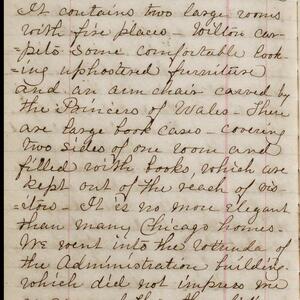 It contains two large rooms
with fire places - Wilton car-
pets some comfortable look-
ing upholstered furniture
and an arm chair carved by
the Princess of Wales - There
are large book cases - covering
two sides of one room and
filled with books, which are
kept out of the reach of vis-
itors - It is no more elegant
than many Chicago homes -
We went into the rotunda of
the Administration building
which did not impress me